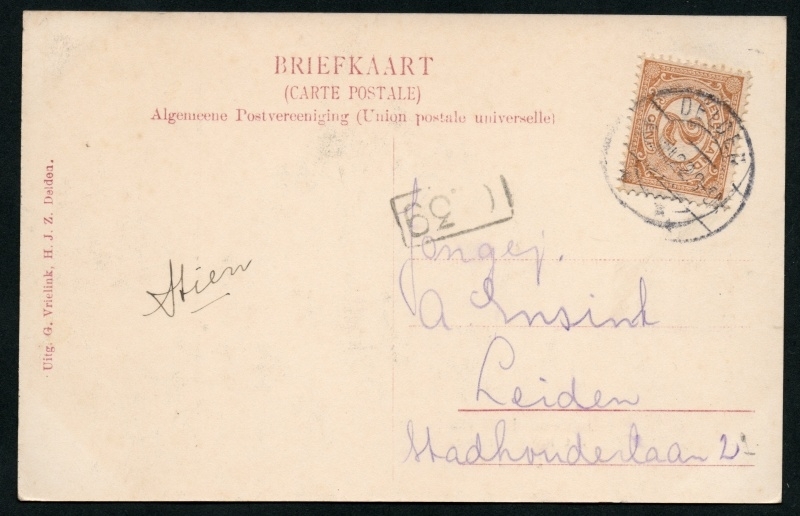 BRIEFKAART
(CARTE POSTALE)
Algemeene Postvereeniging (Union postale universelle)
Uitg. G. Vrielink, H. J. Z. Delden.
DELDEN
CENT
2½
39
Stien
Jongej.
A Ensink
Leiden
Stadhouderlaan 2